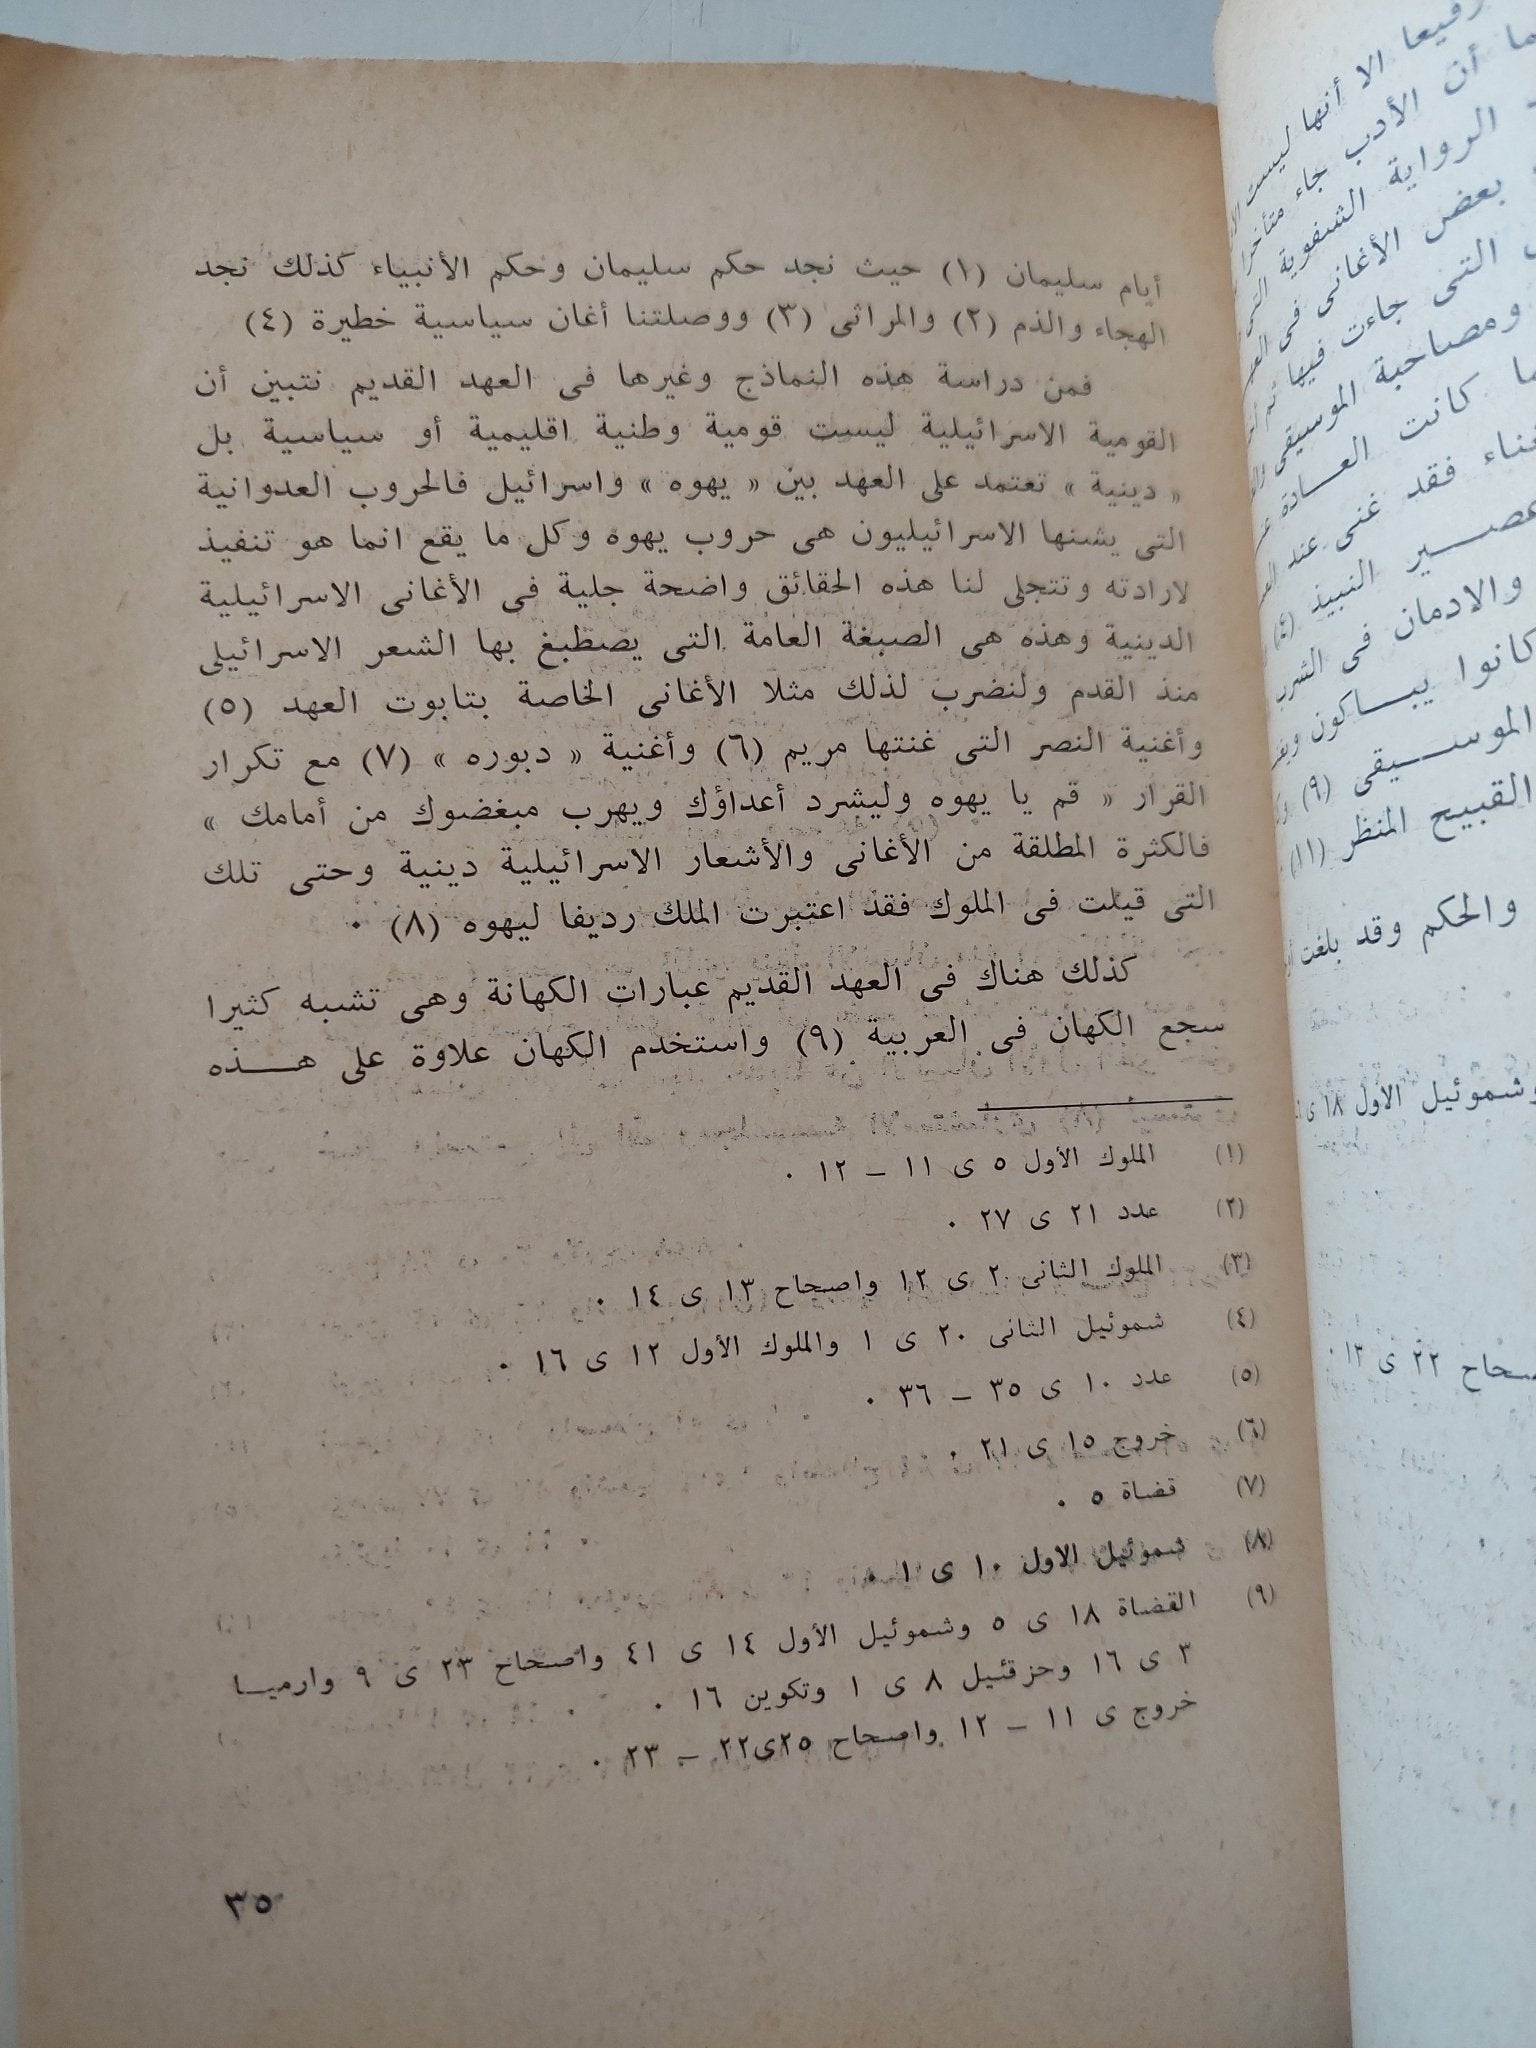 أيام سليمان (١) حيث نجد حكم سليمان وحكم الأنبياء كذلك نجد
الهجاء والذم (٢) والمراثى (٣) ووصلتنا أغان سياسية خطيرة (٤)
فمن دراسة هذه النماذج وغيرها فى العهد القديم نتبين أن
القومية الاسرائيلية ليست قومية وطنية اقليمية أو سياسية بل
« دينية » تعتمد على العهد بين « يهوه » واسرائيل فالحروب العدوانية
التى يشنها الاسرائيليون هى حروب يهوه وكل ما يقع انما هو تنفيذ
لارادته وتتجلى لنا هذه الحقائق واضحة جلية فى الأغانى الاسرائيلية
الدينية وهذه هى الصبغة العامة التى يصطبغ بها الشعر الاسرائيلى
منذ القدم ولنضرب لذلك مثلا الأغانى الخاصة بتابوت العهد (٥)
وأغنية النصر التى غنتها مريم (٦) وأغنية « دبوره » (٧) مع تكرار
القرار « قم يا يهوه وليشرد أعداؤك ويهرب مبغضوك من أمامك »
فالكثرة المطلقة من الأغانى والأشعار الاسرائيلية دينية وحتى تلك
التى قيلت فى الملوك فقد اعتبرت الملك رديفا ليهوه (٨) ٠
كذلك هناك فى العهد القديم عبارات الكهانة وهى تشبه كثيرا
سجع الكهان فى العربية (٩) واستخدم الكهان علاوة على هــــذه
(١) الملوك الأول ٥ ى ١١ – ١٢ ٠
(٢) عدد ٢١ ى ٢٧ ٠
(٣) الملوك الثانى ٢ ى ١٢ واصحاح ١٣ ى ١٤ ٠
(٤) شموئيل الثانى ٢٠ ى ١ والملوك الأول ١٢ ى ١٦ ٠
(٥) عدد ١٠ ى ٣٥ – ٣٦ ٠
(٦) خروج ١٥ ى ٢١ ٠
(٧) قضاة ٥ ٠
(٨) شموئيل الاول ١٠ ى ١ ٠
(٩) القضاة ١٨ ى ٥ وشموئيل الأول ١٤ ى ٤١ واصحاح ٢٣ ى ٩ وارميــا
٣ ى ١٦ وحزقئيل ٨ ى ١ وتكوين ١٦ ٠
خروج ى ١١ – ١٢ واصحاح ٢٥ى٢٢ – ٢٣ ٠
٣٥
رفيعا الا أنها ليست
ما أن الأدب جاء متأخرا
الرواية الشفوية
بعض الأغانى فى
التى جاءت فيها ثم
ومصاحبة الموسيقى
كانت العــادة
فقد غنى عند
النبيذ (٤)
والادمان فى الشرب
كانوا يبــاكون
الموســـيقى (٩)
القبيح المنظر (١١)
والحكم وقد بلغت
وشموئيل الاول ١٨ ى
٢٢ ى ١٣ ٠